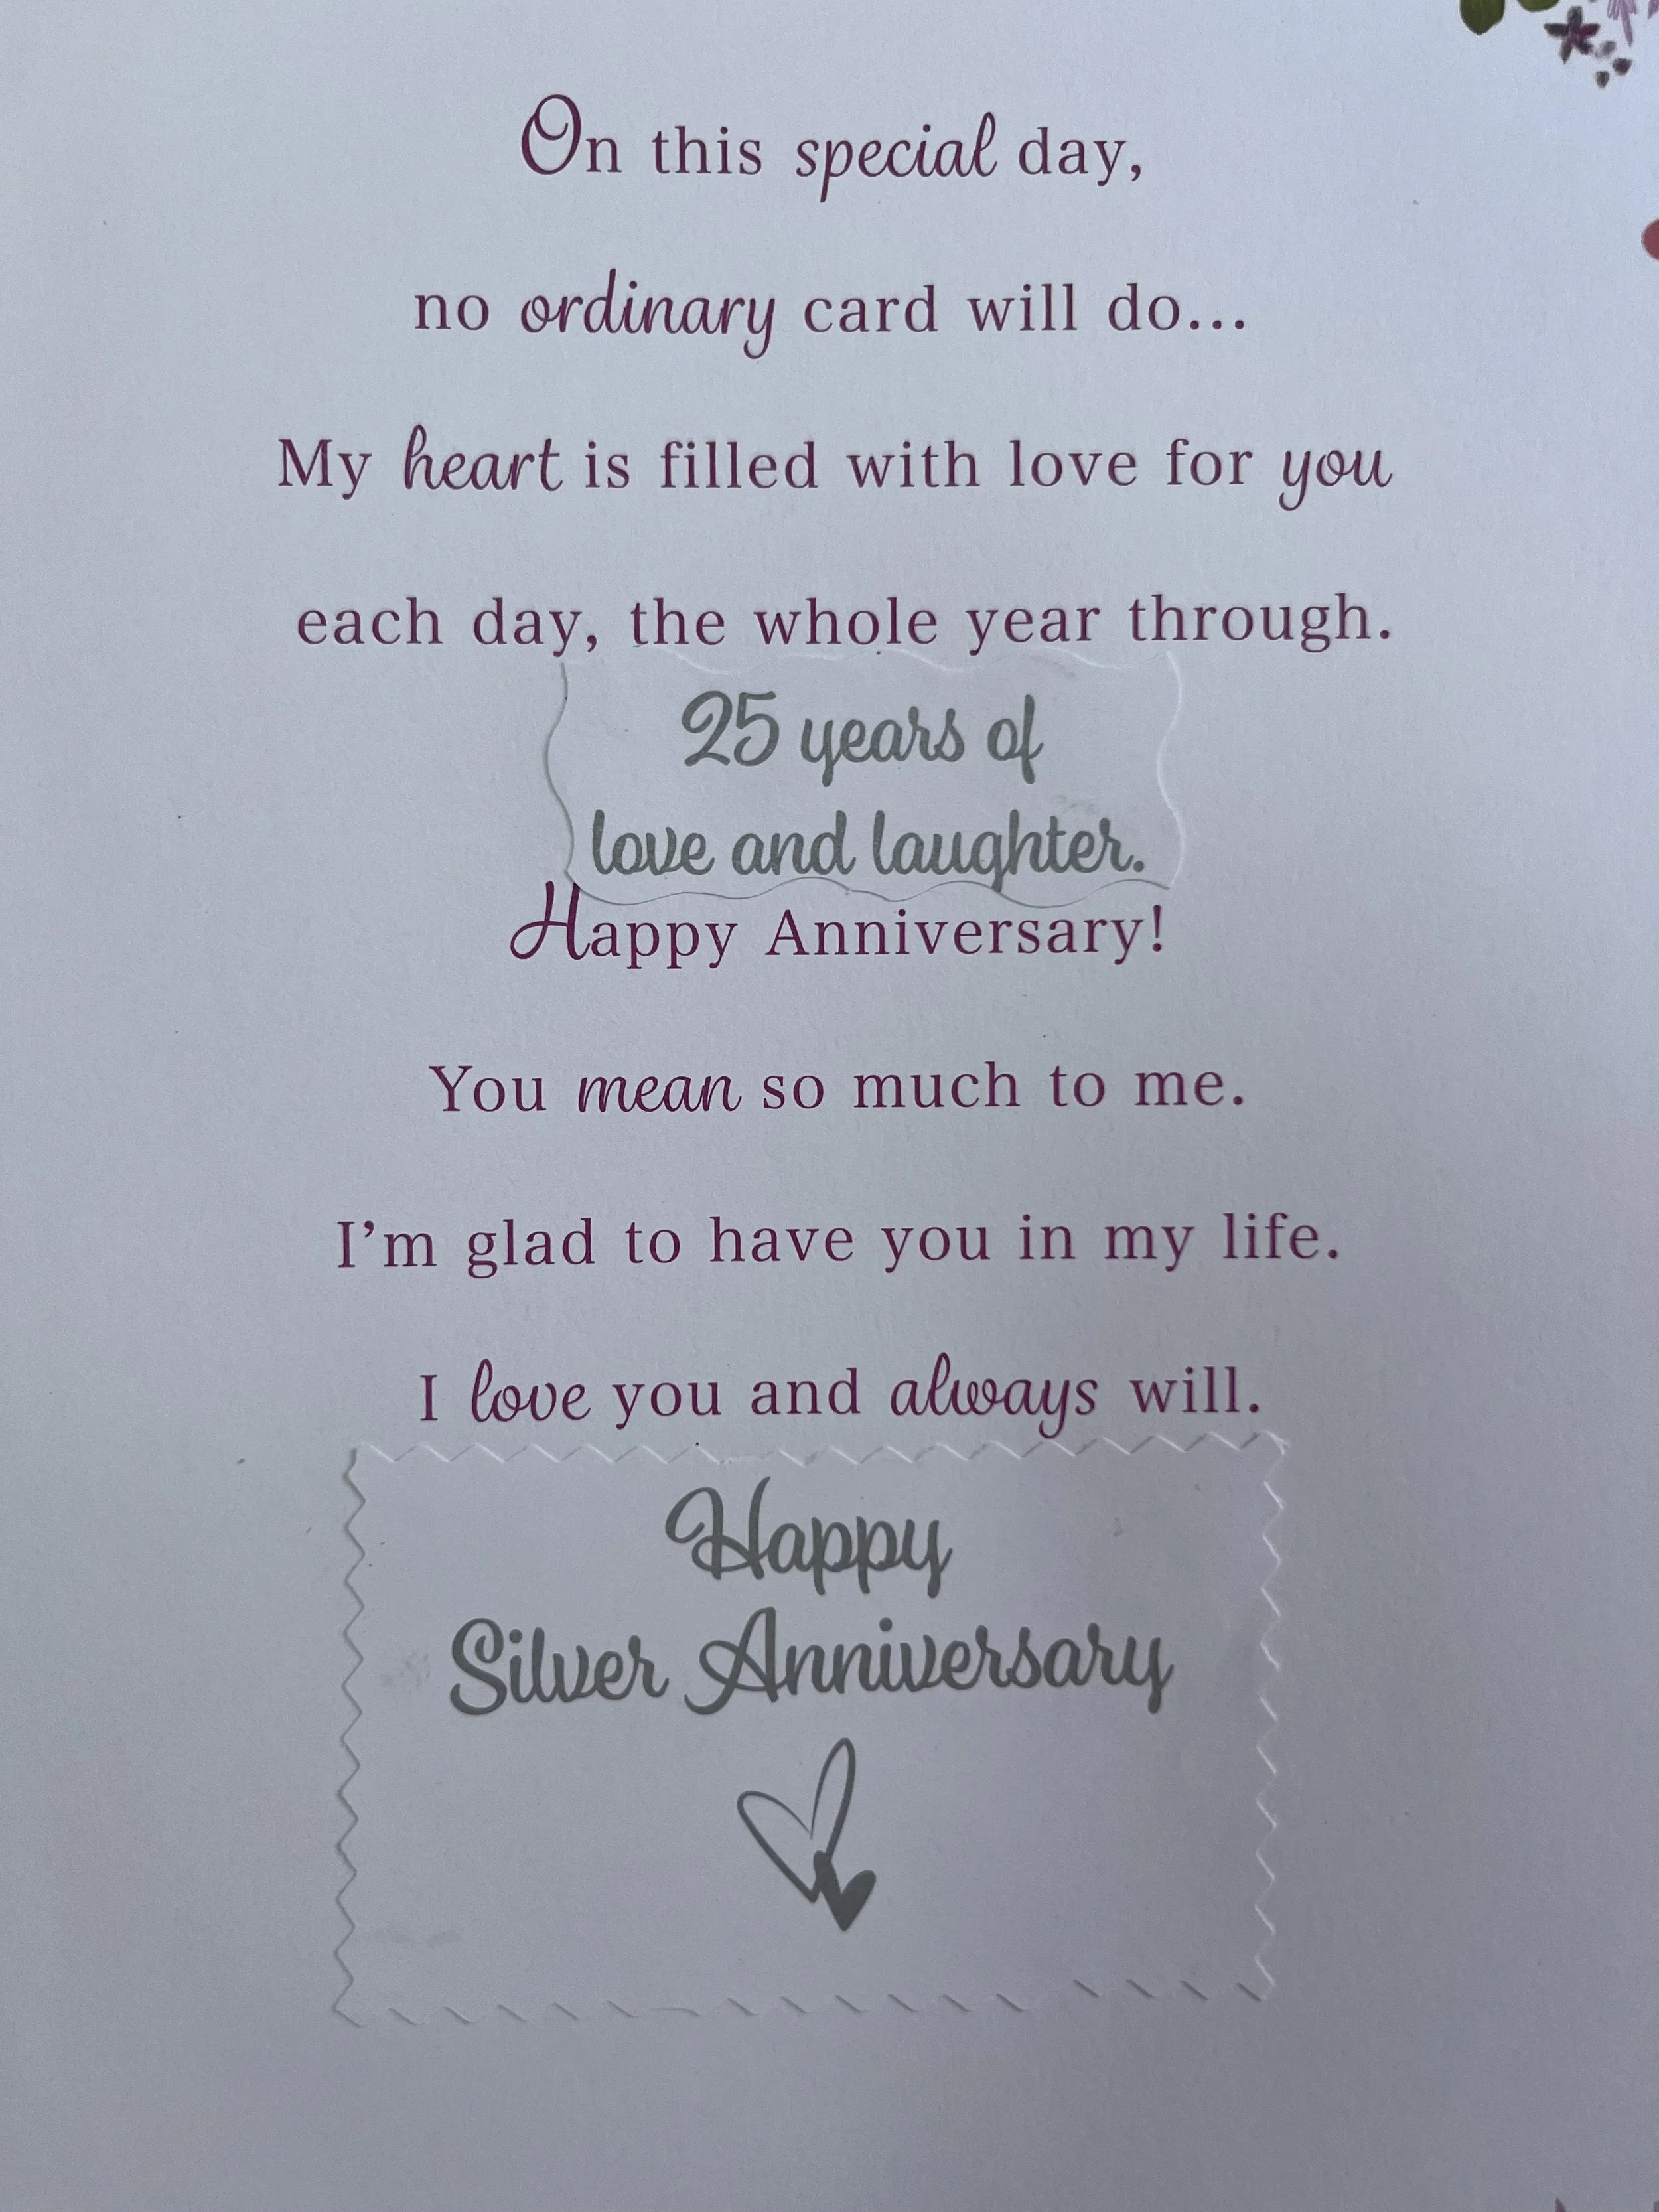 On this special day,
no ordinary card will do...
My heart is filled with love for you
each day, the whole year through.
25 years of
love and laughter.
Happy Anniversary!
You mean so much to me.
I’m glad to have you in my life.
I love you and always will.
Happy
Silver Anniversary